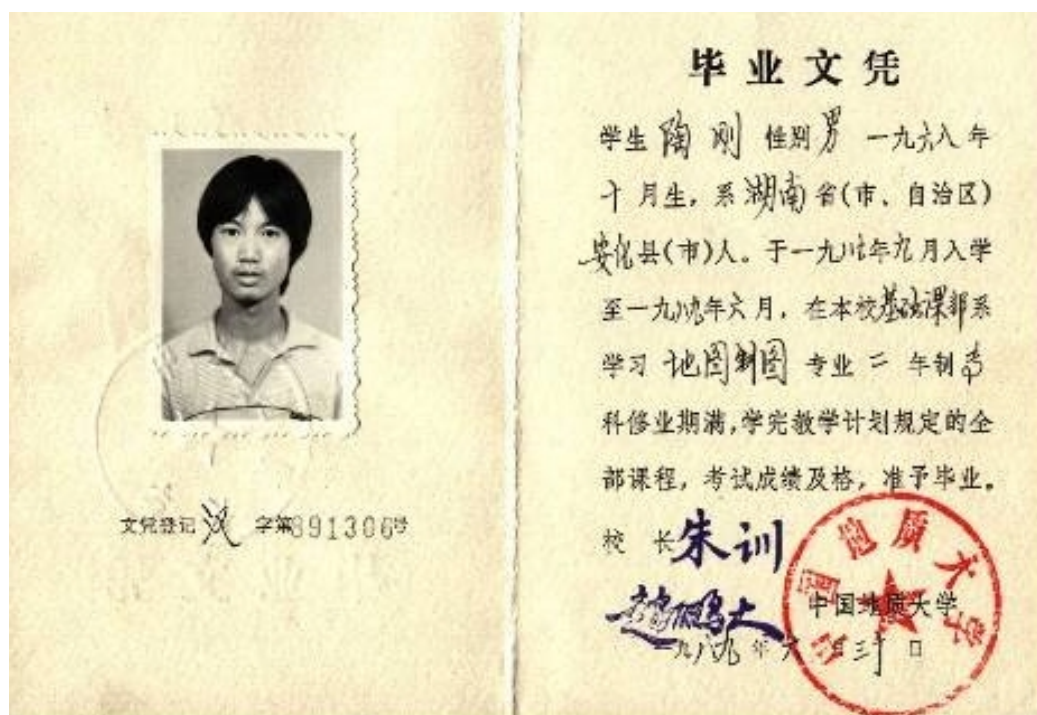 文凭登记汉字第891306号
毕业文凭
学生陶刚性别男一九六八年
十月生，系湖南省(市、自治区)
安化县(市)人。于一九八七年九月入学
至一九八九年六月，在本校基础课部系
学习地图制图专业二年制专
科修业期满，学完教学计划规定的全
部课程，考试成绩及格，准予毕业。
校长朱训
赵鹏大
中国地质大学
一九八九年六月三十日
中国地质大学